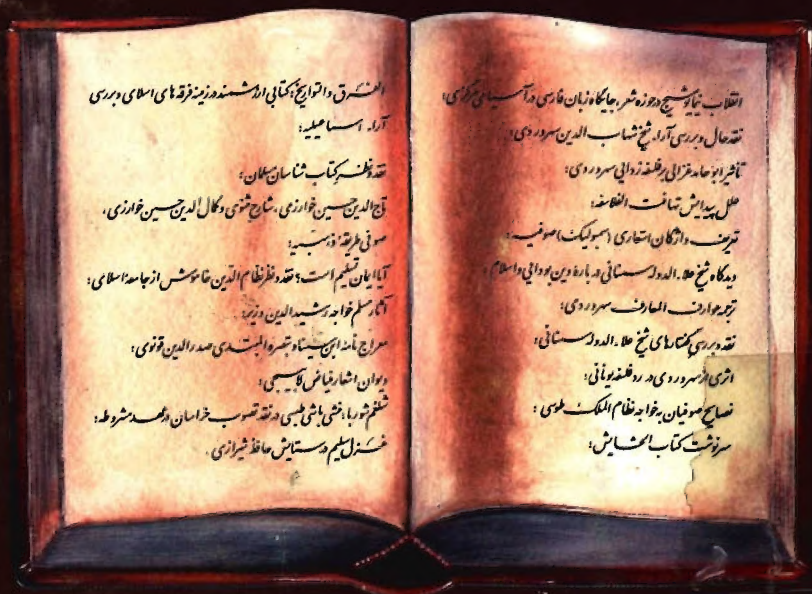 انقلاب نیما یوشیج در حوزه شعر، جایگاه زبان فارسی در آسیای مرکزی؛
نقد حال و بررسی آراء شیخ شهاب الدین سهروردی؛
تأثیر ابوحامد غزالی بر فلسفه زدایی سهروردی؛
علل پیدایش تهافت الفلاسفه؛
تعریف واژگان استعاری (سمبولیک) صوفیه؛
دیدگاه شیخ علاءالدوله سمنانی درباره دین بودایی و اسلام،
ترجمه عوارف المعارف سهروردی؛
نقد و بررسی گفتارهای شیخ علاءالدوله سمنانی؛
اثری از سهروردی در رد فلسفه یونانی؛
نصایح صوفیان به خواجه نظام الملک طوسی؛
سرنوشت کتاب الحشایش؛
الفرق و التواریخ؛ کتابی ارزشمند در زمینه فرقه های اسلامی و بررسی
آراء اسماعیلیه؛
نقد و نظر کتاب شناسان مسلمان؛
تاج الدین حسین خوارزمی، شارح مثنوی و کمال الدین حسین خوارزمی،
صوفی طریقه
آیا ایمان تسلیم است؟ نقد و نظر نظام الدین خاموش از جامعه اسلامی؛
آثار مسلم خواجه رشیدالدین وزیر؛
معراج نامه ابن سینا، تبصره المبتدی صدرالدین قونوی؛
دیوان اشعار فیاض لاهیجی؛
شلغم شوربا، منشی باشی طبسی در نقد تصوب خراسان در عهد مشروطه؛
غزل سلیم در ستایش حافظ شیرازی.